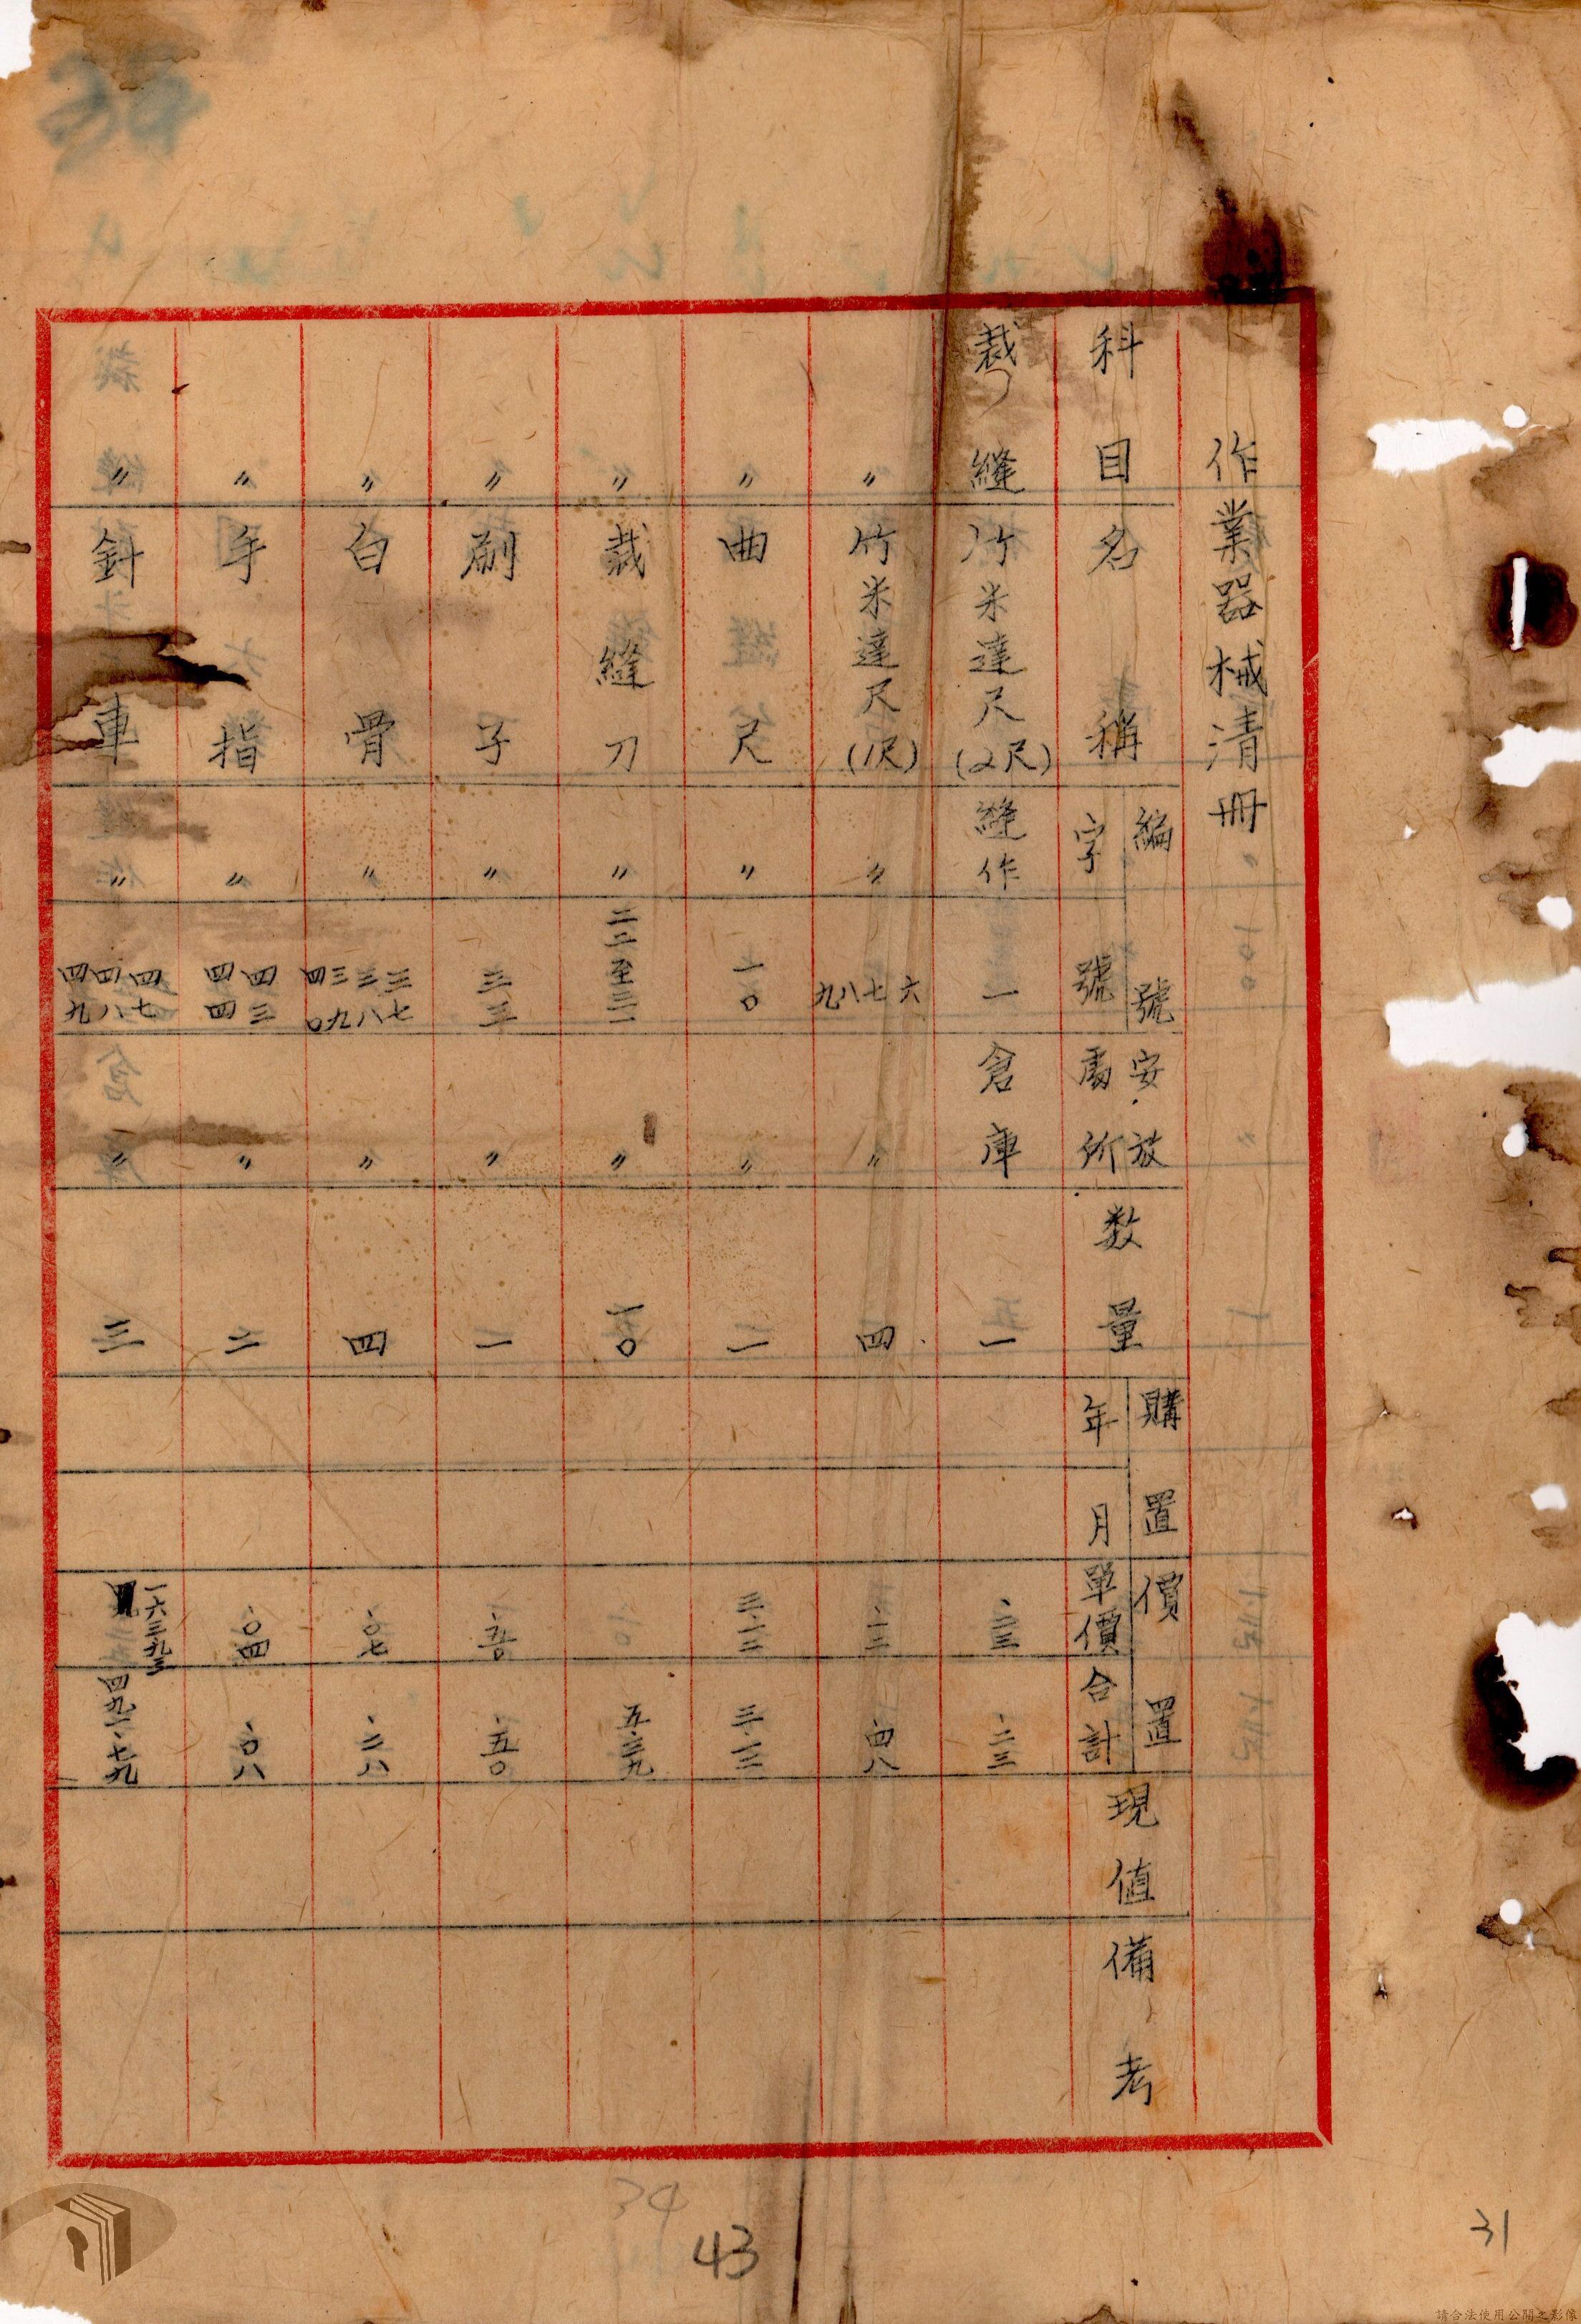 作業器械清冊
科目 名稱 編號 字 號 安放處所 数量 購置 年 月 價置 單價 合計 現值 備考
裁縫 竹米達尺(2尺) 縫作 一 倉庫 一 、二三 、二三
〃 竹米達尺(1尺) 〃 六 七 八 九 〃 四 、一二 、四八
〃 曲尺 〃 一〇 〃 一 三、一二 三、一二
〃 裁縫刀 〃 二二至三一 〃 一〇 五、三九
〃 刷子 〃 三三 〃 一 、五〇 、五〇
〃 白骨 〃 三七 三八 三九 四〇 〃 四 、〇七 、二八
〃 手指 〃 四三 四四 〃 二 、〇四 、〇八
〃 針車 〃 四七 四八 四九 〃 三 一六三九三 四九一、七九
34
43
31
請合法使用公開之影像